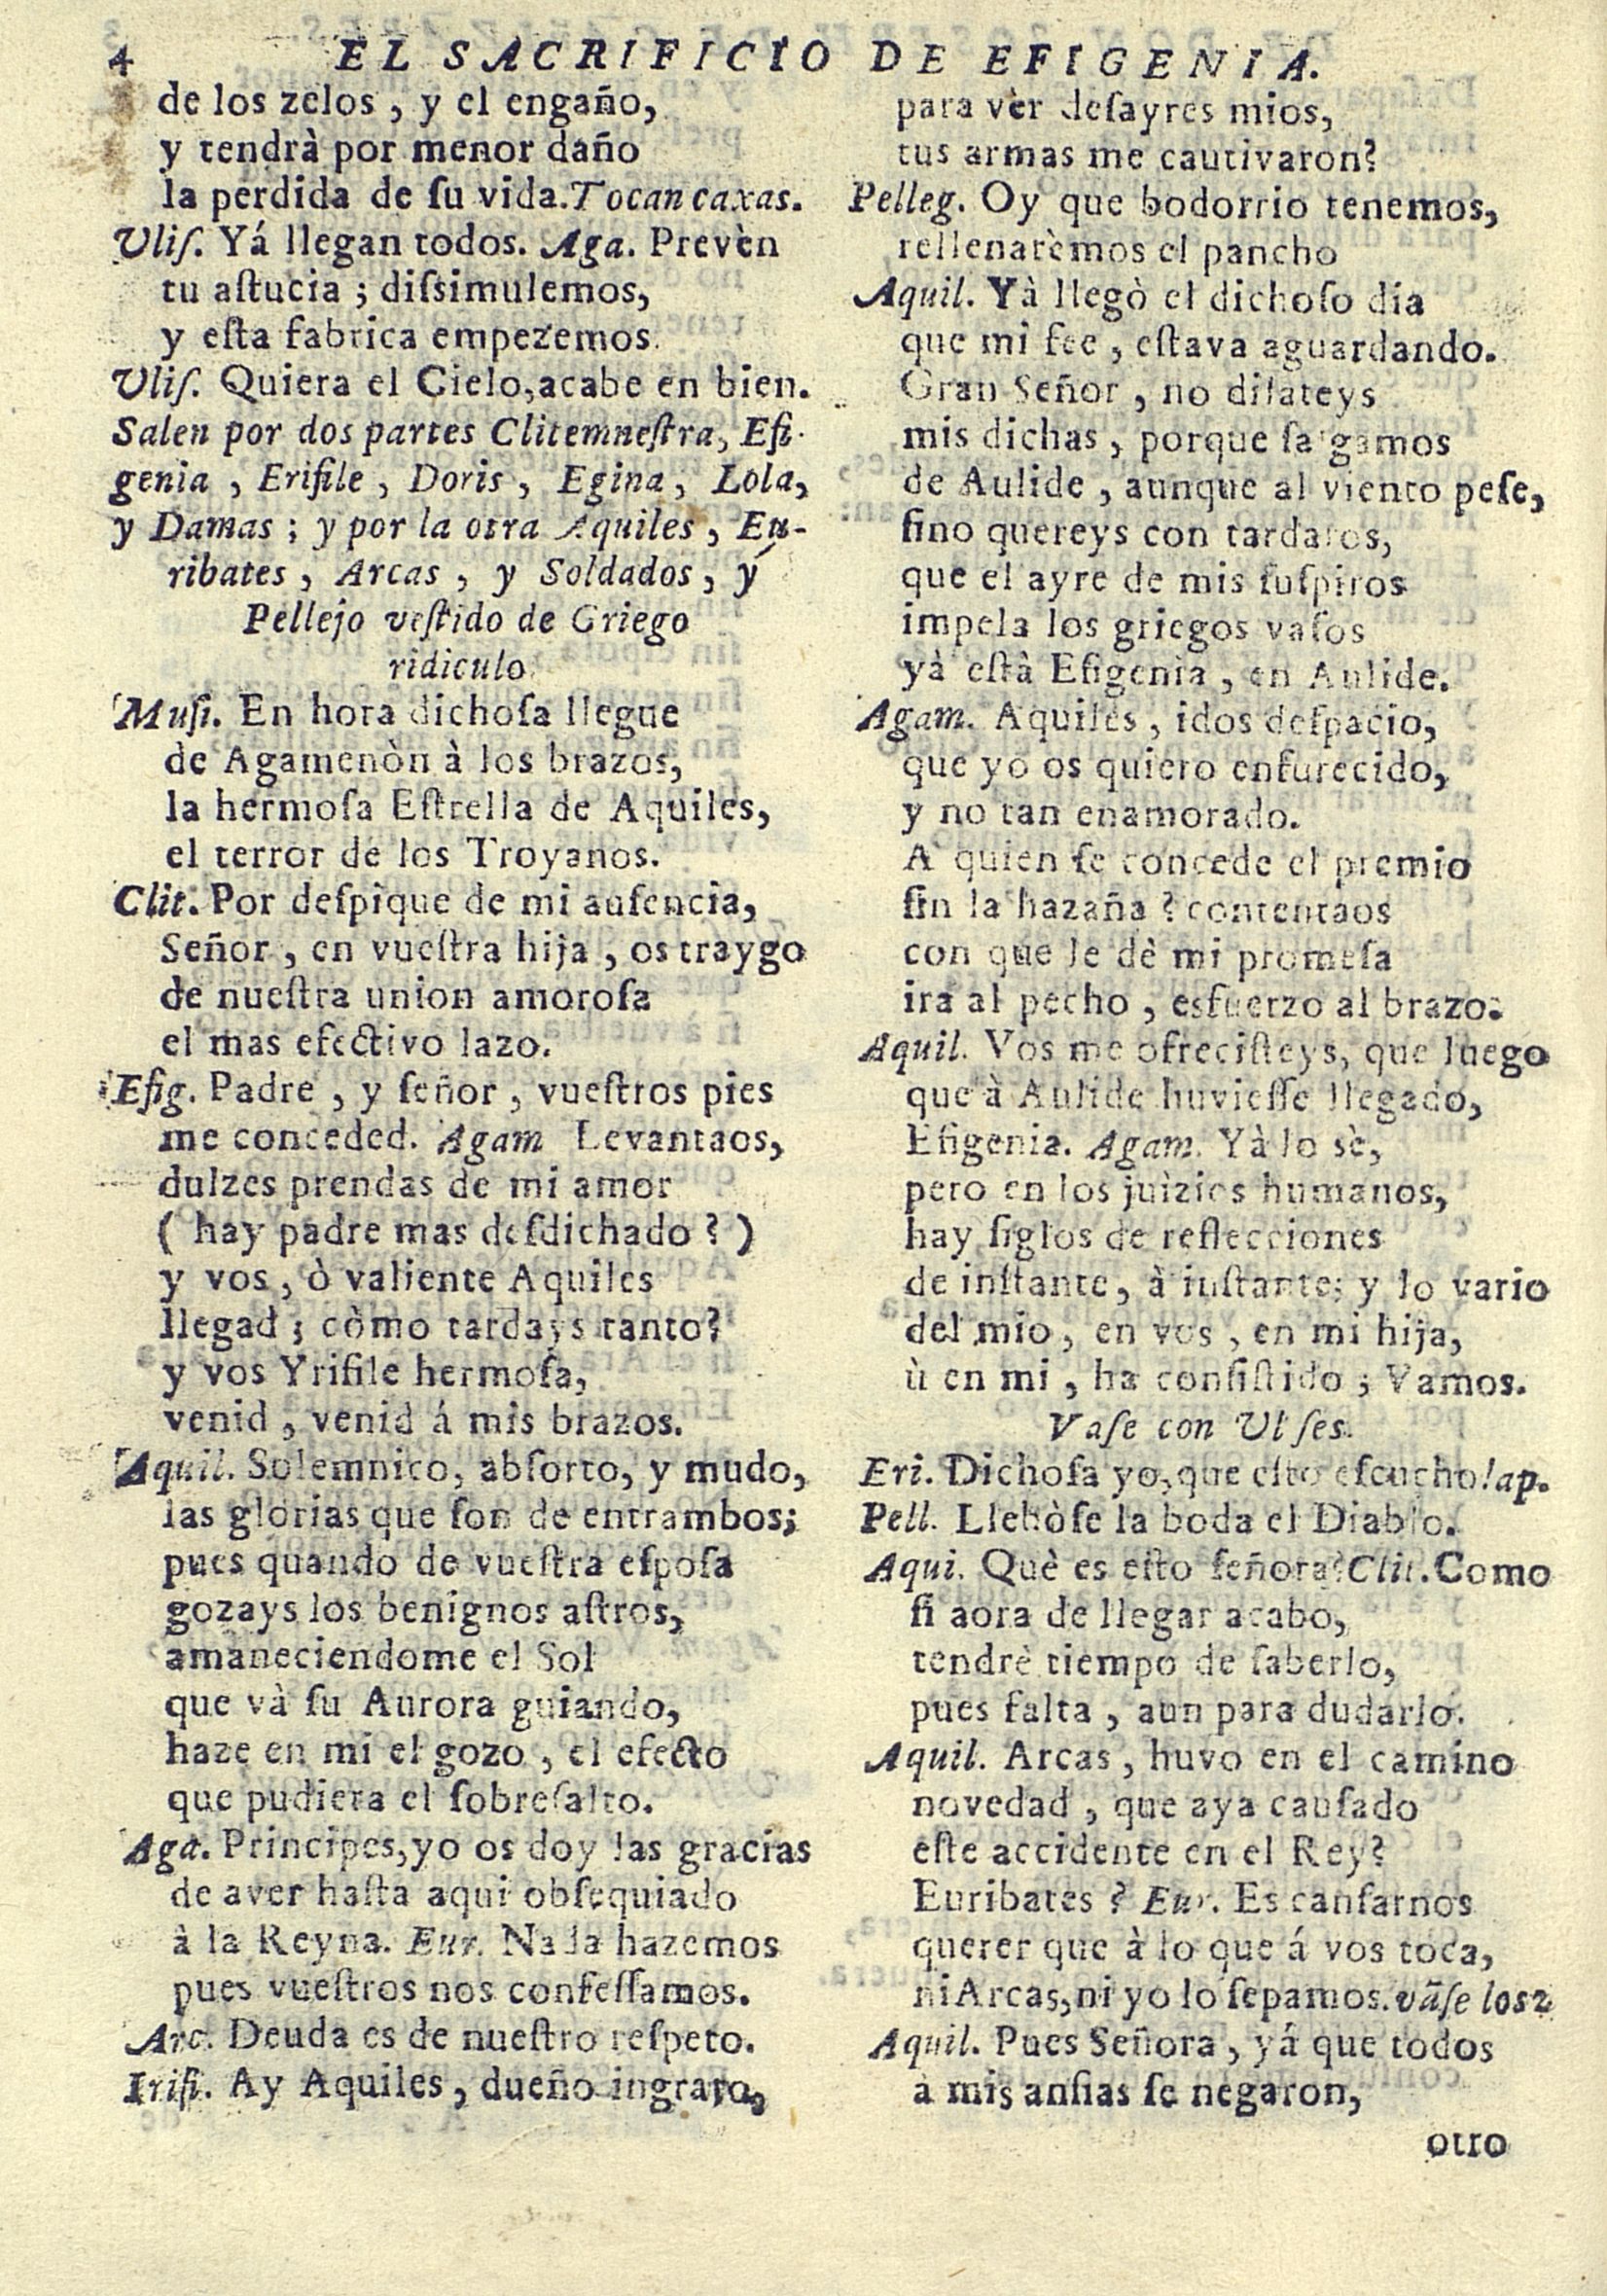 4 EL SACRIFICIO DE EFIGENIA.
de los zelos, y el engaño,
y tendrà por menor daño
la perdida de ſu vida. Tocan caxas.
Uliſ. Yá llegan todos. Aga. Prevèn
tu aſtucia; diſsimulemos,
y eſta fabrica empezemos.
Uliſ. Quiera el Cielo, acabe en bien.
Salen por dos partes Clitemneſtra, Efi-
genia, Erifile, Doris, Egina, Lola,
y Damas; y por la otra Aquiles, Eu-
ribates, Arcas, y Soldados, y
Pellejo veſtido de Griego
ridiculo.
Muſi. En hora dichoſa llegue
de Agamenòn à los brazos,
la hermoſa Eſtrella de Aquiles,
el terror de los Troyanos.
Clit. Por deſpique de mi auſencia,
Señor, en vueſtra hija, os traygo
de nueſtra union amoroſa
el mas efectivo lazo.
Efig. Padre, y ſeñor, vueſtros pies
me conceded. Agam Levantaos,
dulzes prendas de mi amor
(hay padre mas deſdichado?)
y vos, ò valiente Aquiles
llegad; còmo tardays tanto?
y vos Yrifile hermoſa,
venid, venid á mis brazos.
Aquil. Solemnico, abſorto, y mudo,
las glorias que ſon de entrambos;
pues quando de vueſtra eſpoſa
gozays los benignos aſtros,
amaneciendome el Sol
que và ſu Aurora guiando,
haze en mi el gozo, el efecto
que pudiera el ſobreſalto.
Aga. Principes, yo os doy las gracias
de aver haſta aqui obſequiado
à la Reyna. Eur. Nada hazemos
pues vueſtros nos confeſſamos.
Arc. Deuda es de nueſtro reſpeto.
Irifi. Ay Aquiles, dueño ingrato,
para vèr deſayres mios,
tus armas me cautivaron?
Pelleg. Oy que bodorrio tenemos,
rellenarèmos el pancho
Aquil. Yà llegò el dichoſo dia
que mi fee, eſtava aguardando.
Gran Señor, no dilateys
mis dichas, porque ſalgamos
de Aulide, aunque al viento peſe,
ſino quereys con tardaros,
que el ayre de mis ſuſpiros
impela los griegos vaſos
yà eſtà Efigenia, en Aulide.
Agam. Aquiles, idos deſpacio,
que yo os quiero enfurecido,
y no tan enamorado.
A quien ſe concede el premio
ſin la hazaña? contentaos
con que le dè mi promeſa
ira al pecho, esfuerzo al brazo.
Aquil. Vos me ofreciſteys, que luego
que à Aulide huvieſſe llegado,
Efigenia. Agam. Yà lo sè,
pero en los juìzios humanos,
hay ſiglos de reflecciones
de inſtante, à inſtante; y lo vario
del mio, en vos, en mi hija,
ù en mi, ha conſiſtido; Vamos.
Vaſe con Ulſes.
Eri. Dichoſa yo, que eſto eſcucho! ap.
Pell. Llevòſe la boda el Diablo.
Aqui. Què es eſto ſeñora? Clit. Como
ſi aora de llegar acabo,
tendrè tiempo de ſaberlo,
pues falta, aun para dudarlo.
Aquil. Arcas, huvo en el camino
novedad, que aya cauſado
eſte accidente en el Rey?
Euribates? Eur. Es canſarnos
querer que à lo que á vos toca,
ni Arcas, ni yo lo ſepamos. vãſe los 2
Aquil. Pues Señora, yá que todos
à mis anſias ſe negaron,
otro